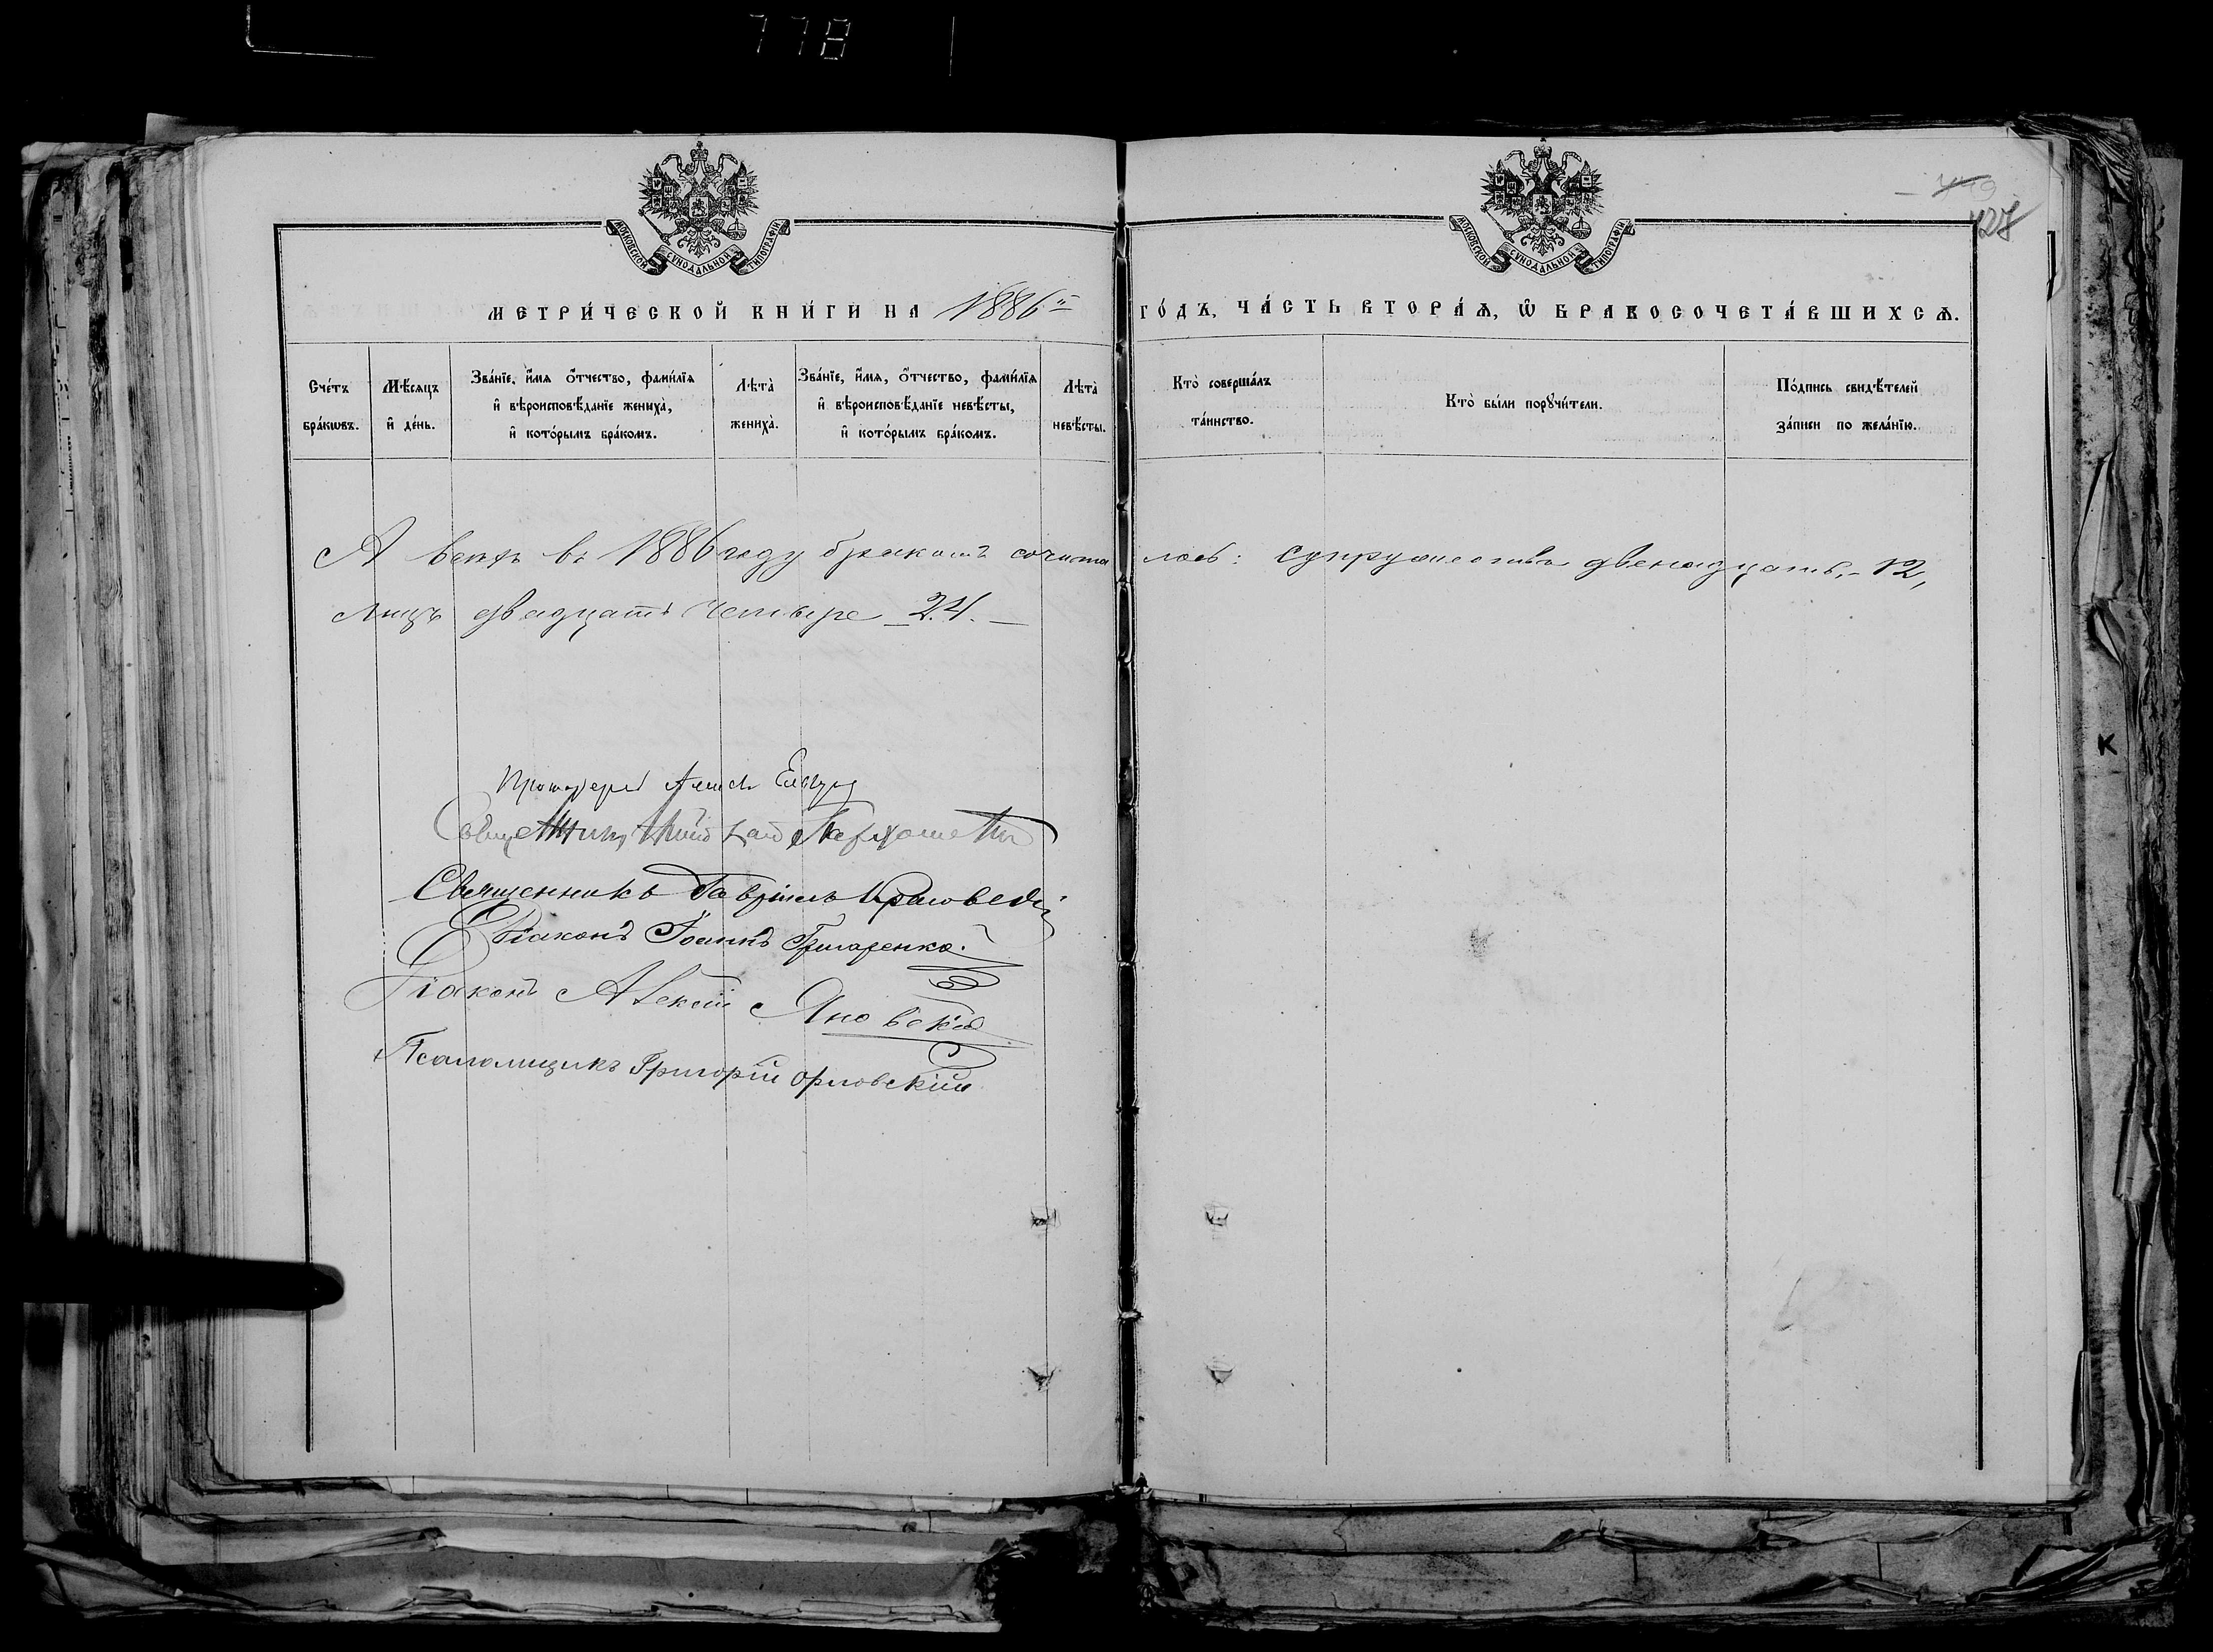 778
МОСКОВСКОЙ СѴНОДАЛЬНОЙ ТИПОГРАФІИ
МОСКОВСКОЙ СѴНОДАЛЬНОЙ ТИПОГРАФІИ
427
МЕТРИ́ЧЕСКОЙ КНИ́ГИ НА 1886й ГО́ДЪ, ЧА́СТЬ ВТОРА́Ѧ, Ѡ҆ БРАКОСОЧЕТА́ВШИХСѦ.
Сче́тъ бра́кѡвъ.
Мѣ́сяцъ и҆ де́нь.
Зва́нїе, и҆́мя ѻ҆́тчество, фами́лїя и҆ вѣроисповѣ́данїе жениха̀, и҆ кото́рымъ бра́комъ.
Лѣта̀ жениха̀.
Зва́нїе, и҆́мя, ѻ҆́тчество, фами́лїя и҆ вѣроисповѣ́данїе невѣ́сты, и҆ кото́рымъ бра́комъ.
Лѣта̀ невѣ́сты.
Кто̀ соверша́лъ та́инство.
Кто̀ бы́ли порꙋчи́тели.
По́дпись свидѣ́телей за́писи по жела́нїю.
А всехъ въ 1886 году бракомъ сочита лось: супружествъ двенадцать, - 12,
лицъ двадцать четыре - 24. -
Протоіерей
Священникъ
Священникъ Гавріилъ
Діаконъ Іоаннъ Григоренко.
Діаконъ Алексій Яновскій
Псаломщикъ Григорій Орловскій
К